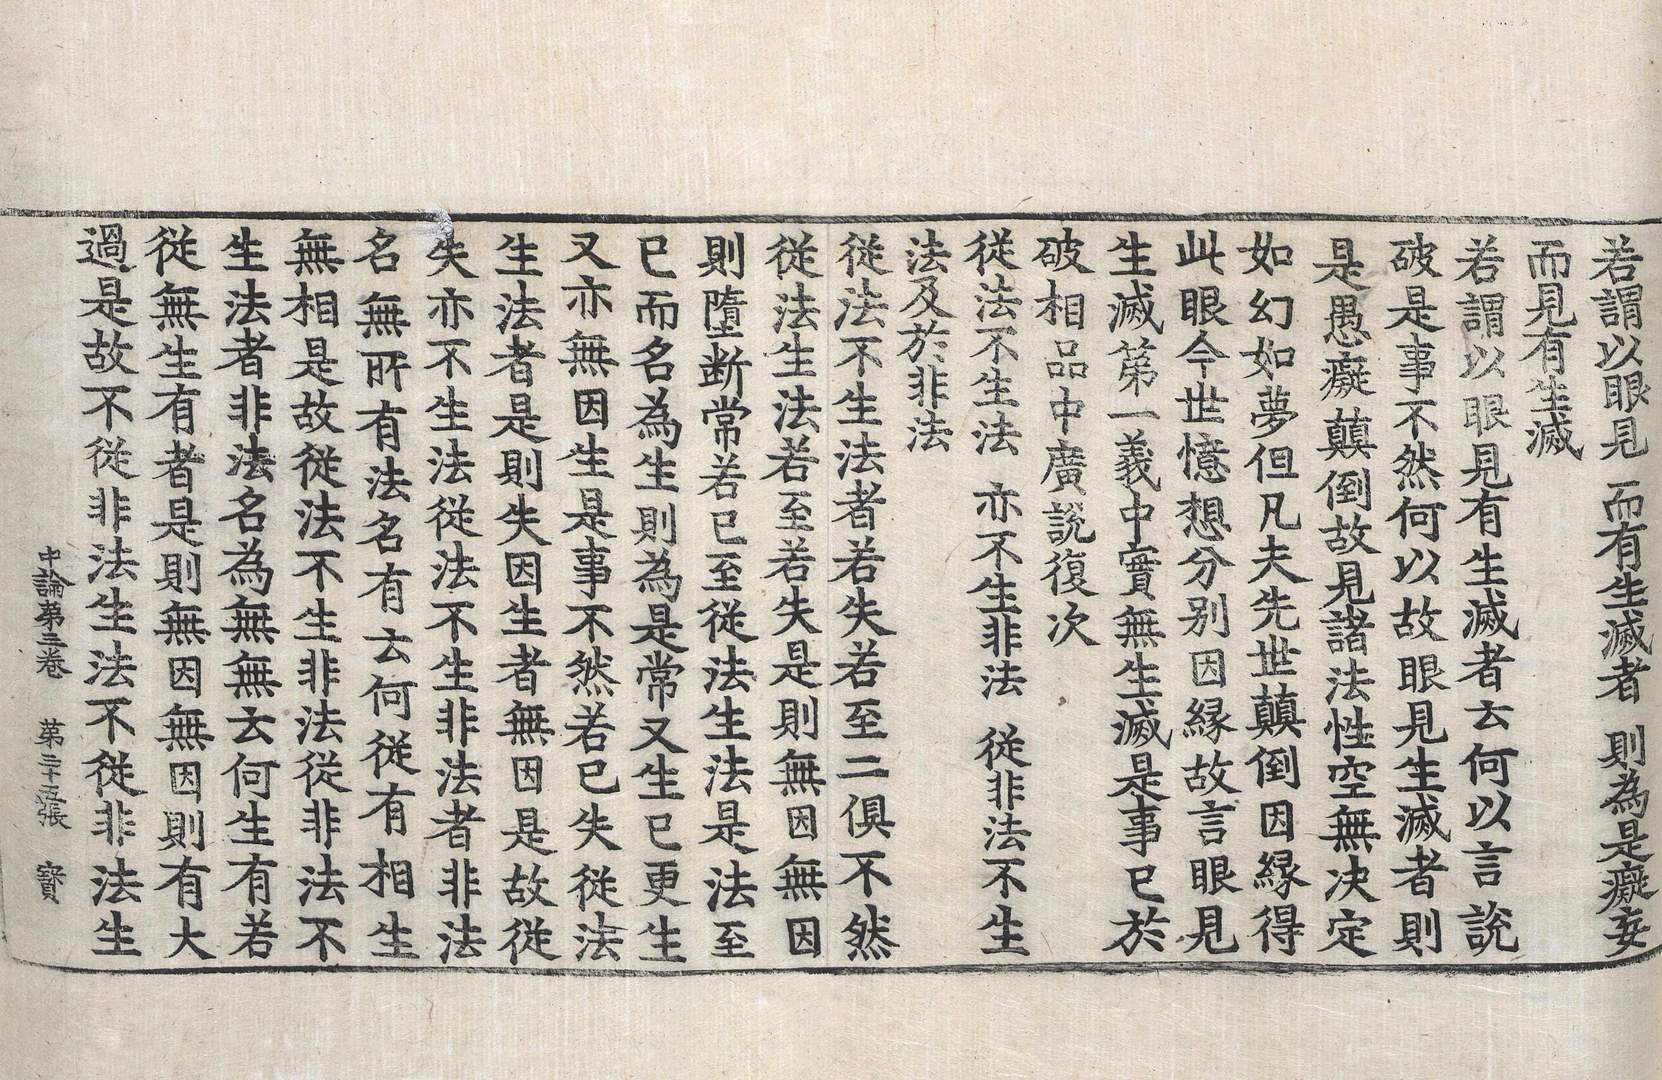 若謂以眼見 而有生滅者 則為是癡妄
而見有生滅
若謂以眼見有生滅者云何以言說
破是事不然何以故眼見生滅者則
是愚癡顛倒故見諸法性空無决定
如幻如夢但凡夫先世顛倒因緣得
此眼今世憶想分别因緣故言眼見
生滅第一義中實無生滅是事已於
破相品中廣說復次
從法不生法 亦不生非法 從非法不生
法及於非法
從法不生法者若失若至二俱不然
從法生法若至若失是則無因無因
則墮斷常若已至從法生法是法至
已而名為生則為是常又生已更生
又亦無因生是事不然若已失從法
生法者是則失因生者無因是故從
失亦不生法從法不生非法者非法
名無所有法名有云何從有相生
無相是故從法不生非法從非法不
生法者非法名為無無云何生有若
從無生有者是則無因無因則有大
過是故不從非法生法不從非法生
中論第三卷 第二十五張 寶